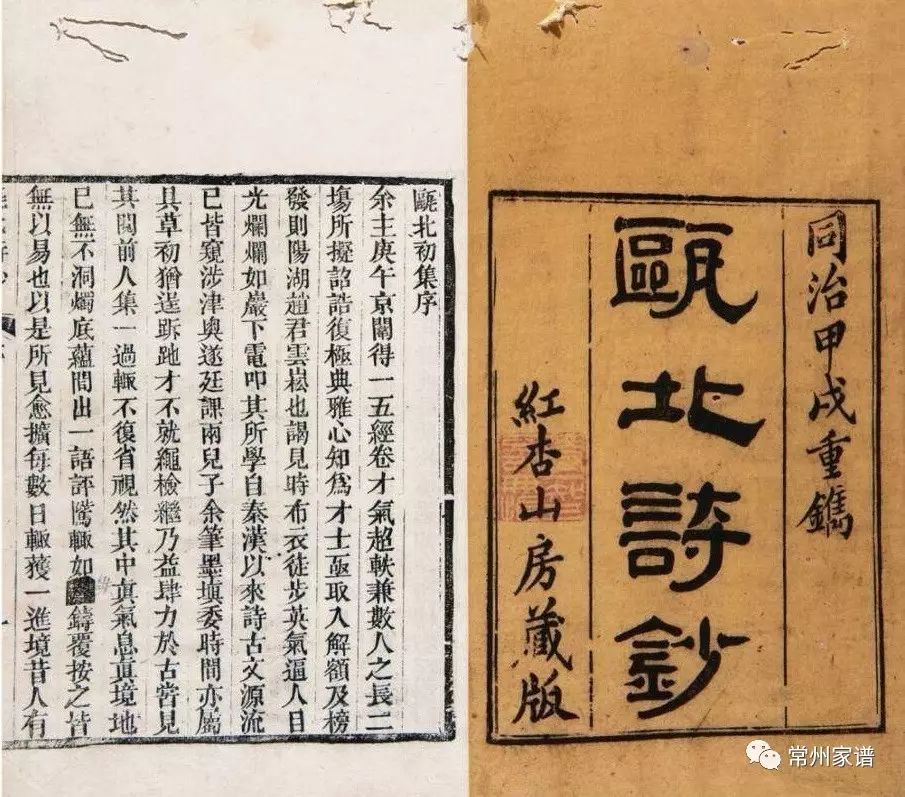 同治甲戌重鐫
甌北詩鈔
紅杏山房藏版
甌北初集序
余主庚午京闈得一五經卷才氣超軼兼數人之長二
塲所擬詔誥復極典雅心知爲才士亟取入解額及榜
發則陽湖趙君雲崧也謁見時布衣徒步英氣逼人目
光爛爛如巖下電叩其所學自秦漢以來詩古文源流
已皆窺涉津奧遂延課兩兒子余筆墨塡委時間亦屬
具草初猶逞跅才不就繩檢繼乃益肆力於古嘗見
其閱前人集一過輒不復省視然其中眞氣息眞境地
已無不洞燭底蘊間出一語評騭輒如鑄覆按之皆
無以易也以是所見愈擴每數日輒獲一進境昔人有
常州家谱